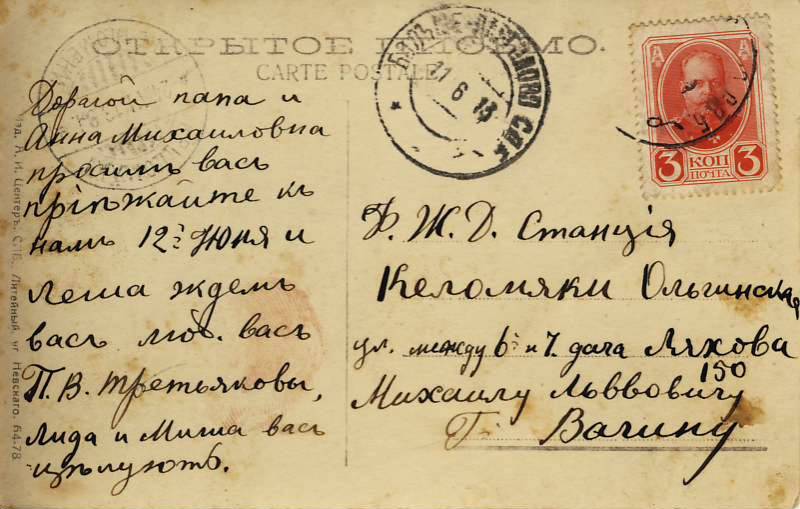 ОТКРЫТОЕ ПИСЬМО.
CARTE POSTALE
Дорогой папа и
Анна Михаиловна
просимъ васъ
пріѣжайте къ
намъ 12го Июня и
Леша ждемъ
васъ люб. васъ
П. В. Третьяковы,
Лида и Миша васъ
цѣлуютъ.
11 6 13
КОП
3 3
ПОЧТА
Ф. Ж. Д. Станція
Келомяки Ольгинская
ул. между 6й и 7. дача Ляхова
150
Михаилу Львовичу
Г. Вагину
Изд. А. И. Центеръ, СПБ., Литейный, уг. Невскаго, 64-78.